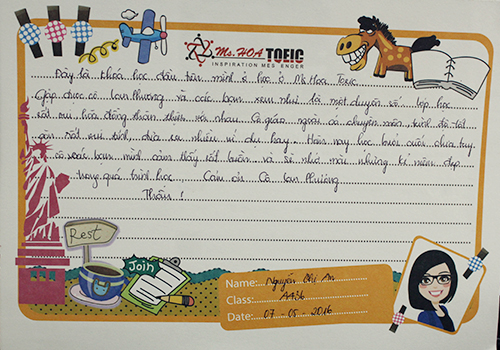 Ms. HOA TOEIC
INSPIRATION MESSENGER
Đây là khóa học đầu tiên mình học ở Ms Hoa Toeic.
Gặp được cô Lan Phương và các bạn xem như là một duyên số, lớp học
rất vui hòa đồng thân thiện với nhau. Cô giáo ngoài có chuyên môn kinh độ tốt
còn rất vui tính, đưa ra nhiều ví dụ hay. Hôm nay học buổi cuối chia tay
cô và các bạn mình cảm thấy rất buồn và sẽ nhớ mãi những kỉ niệm đẹp
trong quá trình học. Cám ơn Cô Lan Phương
Thân!
Rest
Join
Name: Nguyễn Chi An
Class: A436
Date: 07 - 05 - 2016